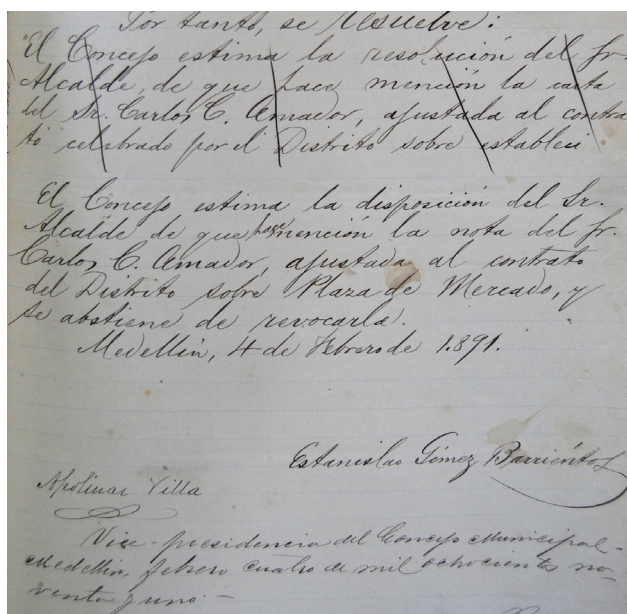 Por tanto, se resuelve:
"El Concejo estima la resolución del Sr.
Alcalde, de que hace mención la carta
del Sr. Carlos C. Amador, ajustada al contra
to celebrado por el Distrito sobre estableci
El Concejo estima la disposición del Sr.
Alcalde de que hace mención la nota del Sr.
Carlos C. Amador, ajustada al contrato
del Distrito sobre Plaza de Mercado, y
se abstiene de revocarla.
Medellín, 4 de Febrero de 1.891.
Estanislao Gómez Barriéntos
Apolinar Villa
Vice-presidencia del Concejo Municipal-
Medellín, febrero cuatro de mil ochocientos no-
venta y uno-